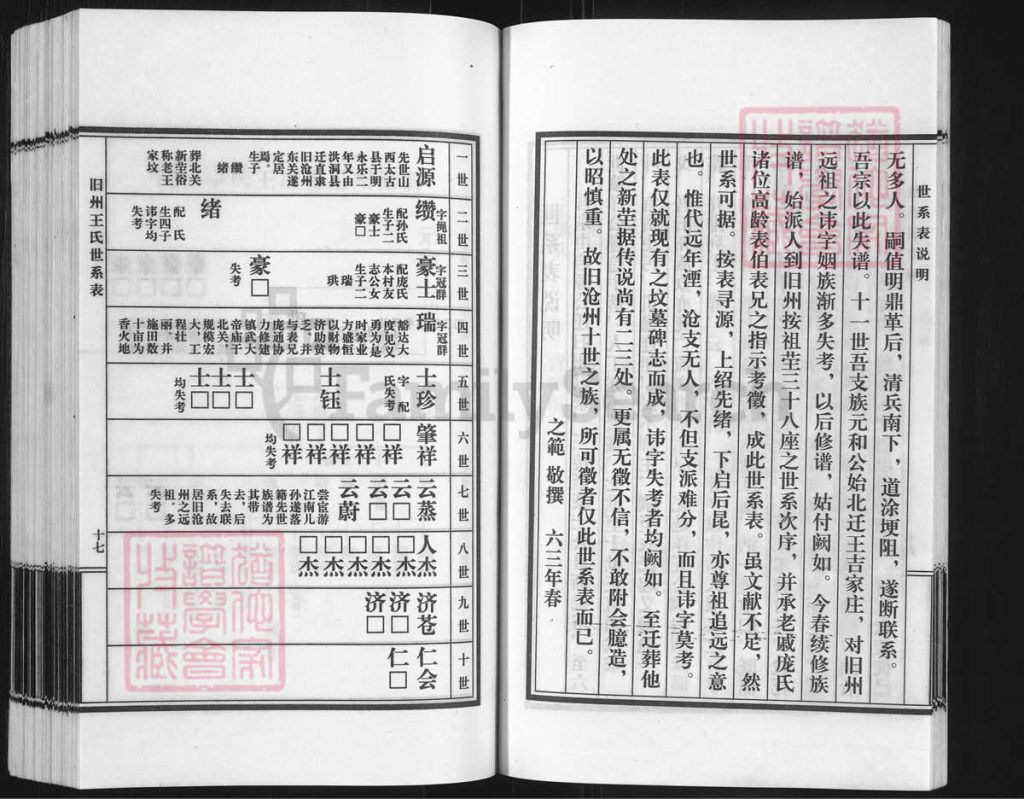 世系表说明
无多人。嗣值明鼎革后，清兵南下，道涂埂阻，遂断联系。
吾宗以此失谱。十一世吾支族元和公始北迁王吉家庄，对旧州
远祖之讳字姻族渐多失考，以后修谱，姑付阙如。今春续修族
谱，始派人到旧州按祖茔三十八座之世系次序，并承老戚庞氏
诸位高龄表伯表兄之指示考徵，成此世系表。虽文献不足，然
世系可据。按表寻源，上绍先绪，下启后昆，亦尊祖追远之意
也。惟代远年湮，沧支无人，不但支派难分，而且讳字莫考。
此表仅就现有之坟墓碑志而成，讳字失考者均阙如。至迁葬他
处之新茔据传说尚有二三处。更属无徵不信，不敢附会臆造，
以昭慎重。故旧沧州十世之族，所可徵者仅此世系表而已。
之範 敬撰 六三年春
一世
启源
先世山
西太古
县于明
永乐二
年又由
洪洞县
迁直隶
旧沧州
东关遂
定居
焉。
生子
缵
绪
葬北关
新茔俗
称老王
家坟
二世
缵
字绳祖
配孙氏
生子二
豪士
豪□
绪
配 氏
生四子
讳字均
失考
三世
豪士
字冠群
配庞氏
本村友
志公女
生子二
瑞
琪
豪□
失考
四世
瑞
字冠群
豁达大
度见义
勇为是
时家业
方盛恒
以财物
济助贫
乏。并
与表兄
庞通协
力修建
镇武大
帝庙于
北关，
规模宏
大，工
程壮
丽。并
施田数
十亩为
香火地
五世
士珍
字 配
氏失考
士钰
士□
士□
士□
均失考
六世
肇祥
□祥
□祥
□祥
□祥
□祥
均失考
七世
云蒸
云□
云□
云蔚
尝宦游
江南儿
孙遂落
籍先世
族谱为
其带
去，后
失去联
系，故
居旧沧
州之远
祖。多
失考
八世
人杰
□杰
□杰
□杰
□杰
□杰
九世
济苍
济□
济□
十世
仁会
仁□
旧州王氏世系表
十七
FamilySearch